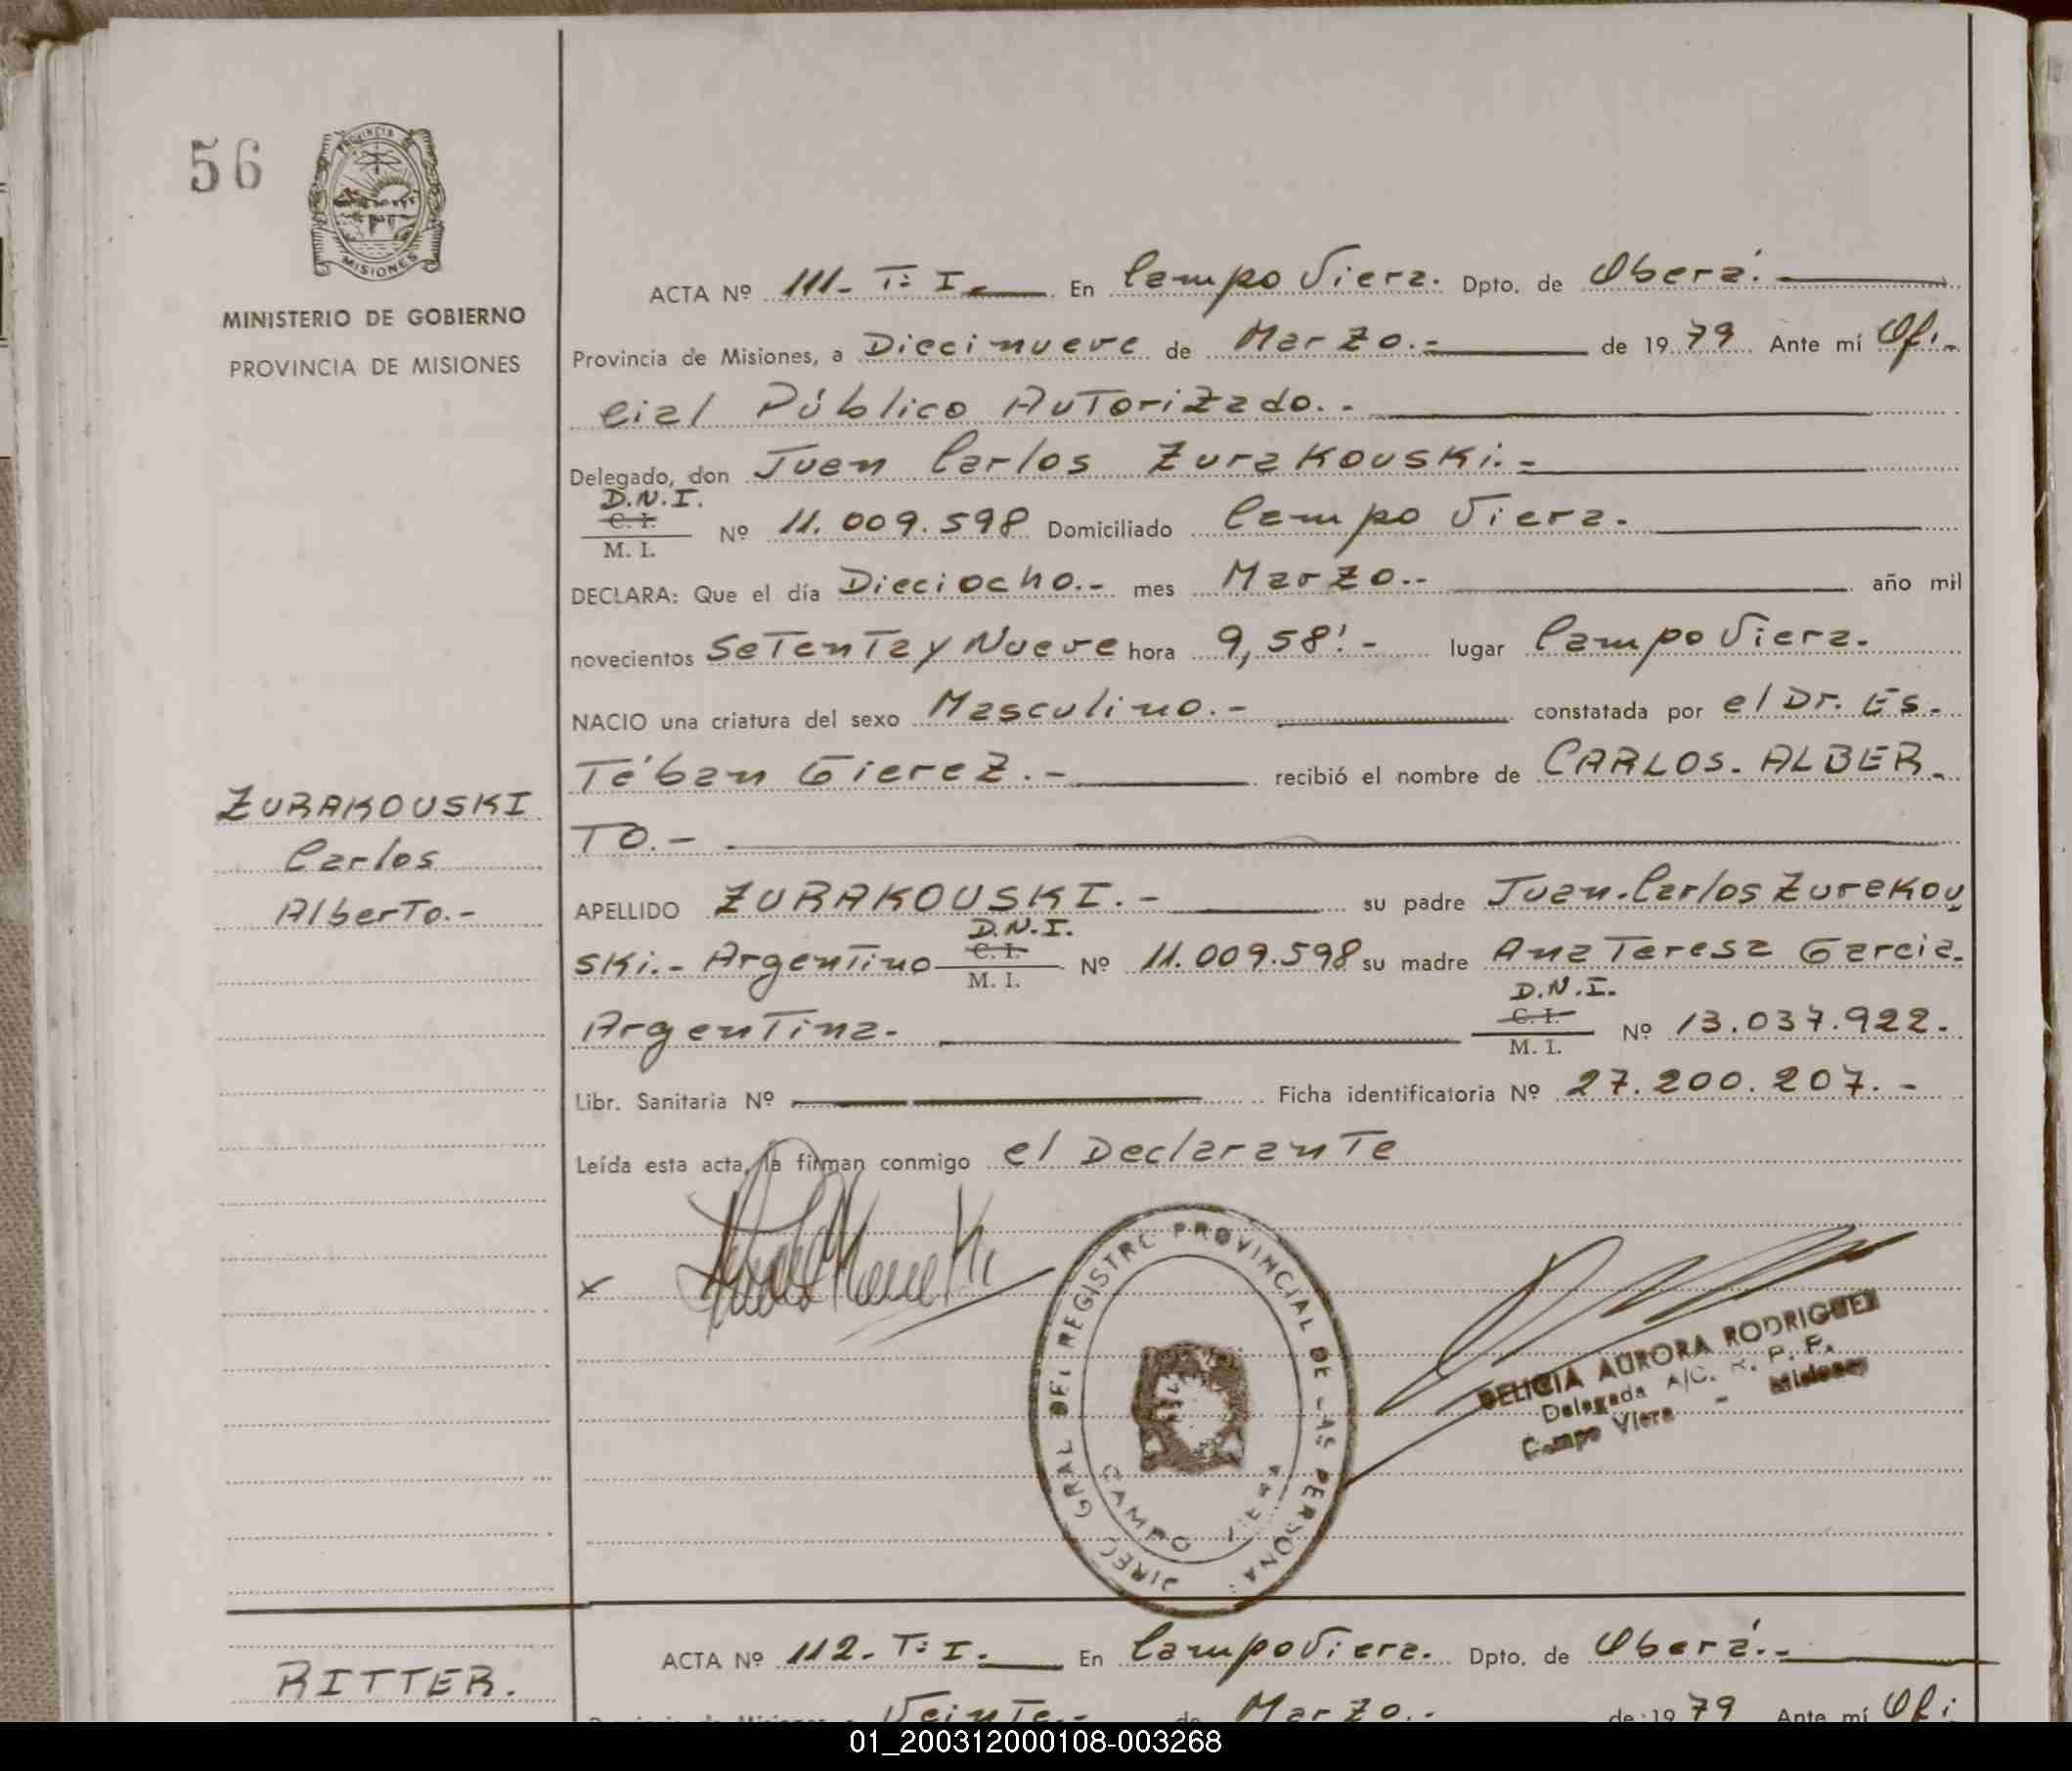 56
PROVINCIA
MISIONES
MINISTERIO DE GOBIERNO
PROVINCIA DE MISIONES
ACTA Nº 111- T: I.- En Campo Viera. Dpto. de Oberá.
Provincia de Misiones, a Diecinueve de Marzo.- de 1979 Ante mí Ofi-
cial Público Autorizado.-
Delegado, don Juan Carlos Zurakouski.-
D.N.I.
C. I.
M. I.
Nº 11.009.598 Domiciliado Campo Viera.
DECLARA: Que el día Dieciocho.- mes Marzo.- año mil
novecientos Setenta y Nueve hora 9,58'.- lugar Campo Viera.
NACIO una criatura del sexo Masculino.- constatada por el Dr. Es-
téban Gierez.- recibió el nombre de CARLOS. ALBER-
TO.-
ZURAKOUSKI
Carlos
Alberto.-
APELLIDO ZURAKOUSKI.- su padre Juan.Carlos Zurakou
ski.- Argentino D.N.I. C. I. M. I. Nº 11.009.598 su madre Ana Teresa Garcia.
Argentina. D.N.I. C. I. M. I. Nº 13.037.922.
Libr. Sanitaria Nº Ficha identificatoria Nº 27.200.207.-
Leída esta acta, la firman conmigo el Declarante
x
DIREC GRAL DEL REGISTRO PROVINCIAL DE LAS PERSONAS
CAMPO VIERA
DELICIA AURORA RODRIGUEZ
Delegada A/C. R. P. P.
Campo Viera - Misiones
ACTA Nº 112- T: I.- En Campo Viera. Dpto. de Oberá.-
RITTER.
Provincia de Misiones, a Veinte.- de Marzo.- de 1979 Ante mí Ofi
01_200312000108-003268